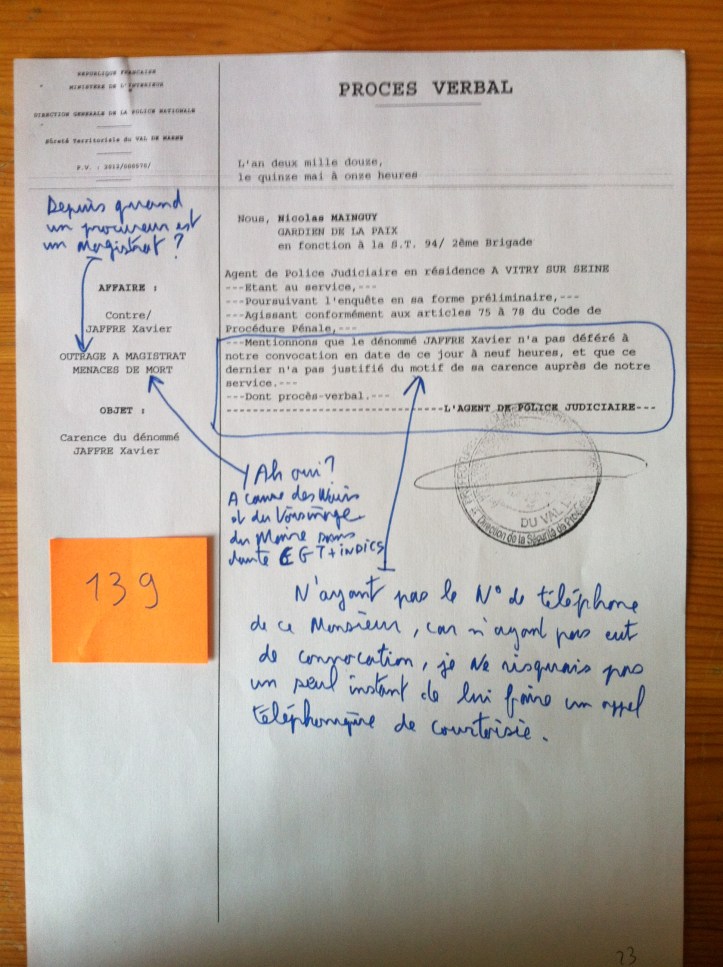 REPUBLIQUE FRANCAISE
MINISTERE DE L'INTERIEUR
DIRECTION GENERALE DE LA POLICE NATIONALE
Sûreté Territoriale du VAL DE MARNE
P.V. : 2012/000570/
Depuis quand
un procureur est
un Magistrat ?
AFFAIRE :
Contre/
JAFFRE Xavier
OUTRAGE A MAGISTRAT
MENACES DE MORT
OBJET :
Carence du dénommé
JAFFRE Xavier
139
PROCES VERBAL
L'an deux mille douze,
le quinze mai à onze heures
Nous, Nicolas MAINGUY
GARDIEN DE LA PAIX
en fonction à la S.T. 94/ 2ème Brigade
Agent de Police Judiciaire en résidence A VITRY SUR SEINE
---Etant au service,---
---Poursuivant l'enquête en sa forme préliminaire,---
---Agissant conformément aux articles 75 à 78 du Code de
Procédure Pénale,---
---Mentionnons que le dénommé JAFFRE Xavier n'a pas déféré à
notre convocation en date de ce jour à neuf heures, et que ce
dernier n'a pas justifié du motif de sa carence auprès de notre
service.---
---Dont procès-verbal.---
---L'AGENT DE POLICE JUDICIAIRE---
DU VAL
Direction de la Sécurité de
Ah oui ?
A cause des
et du Voisinage
du Maire sans
doute EGT + indics
N'ayant pas le N° de téléphone
de ce Monsieur, car n'ayant pas eut
de convocation, je Ne risquais pas
un seul instant de lui faire un appel
téléphonique de courtoisie.
23